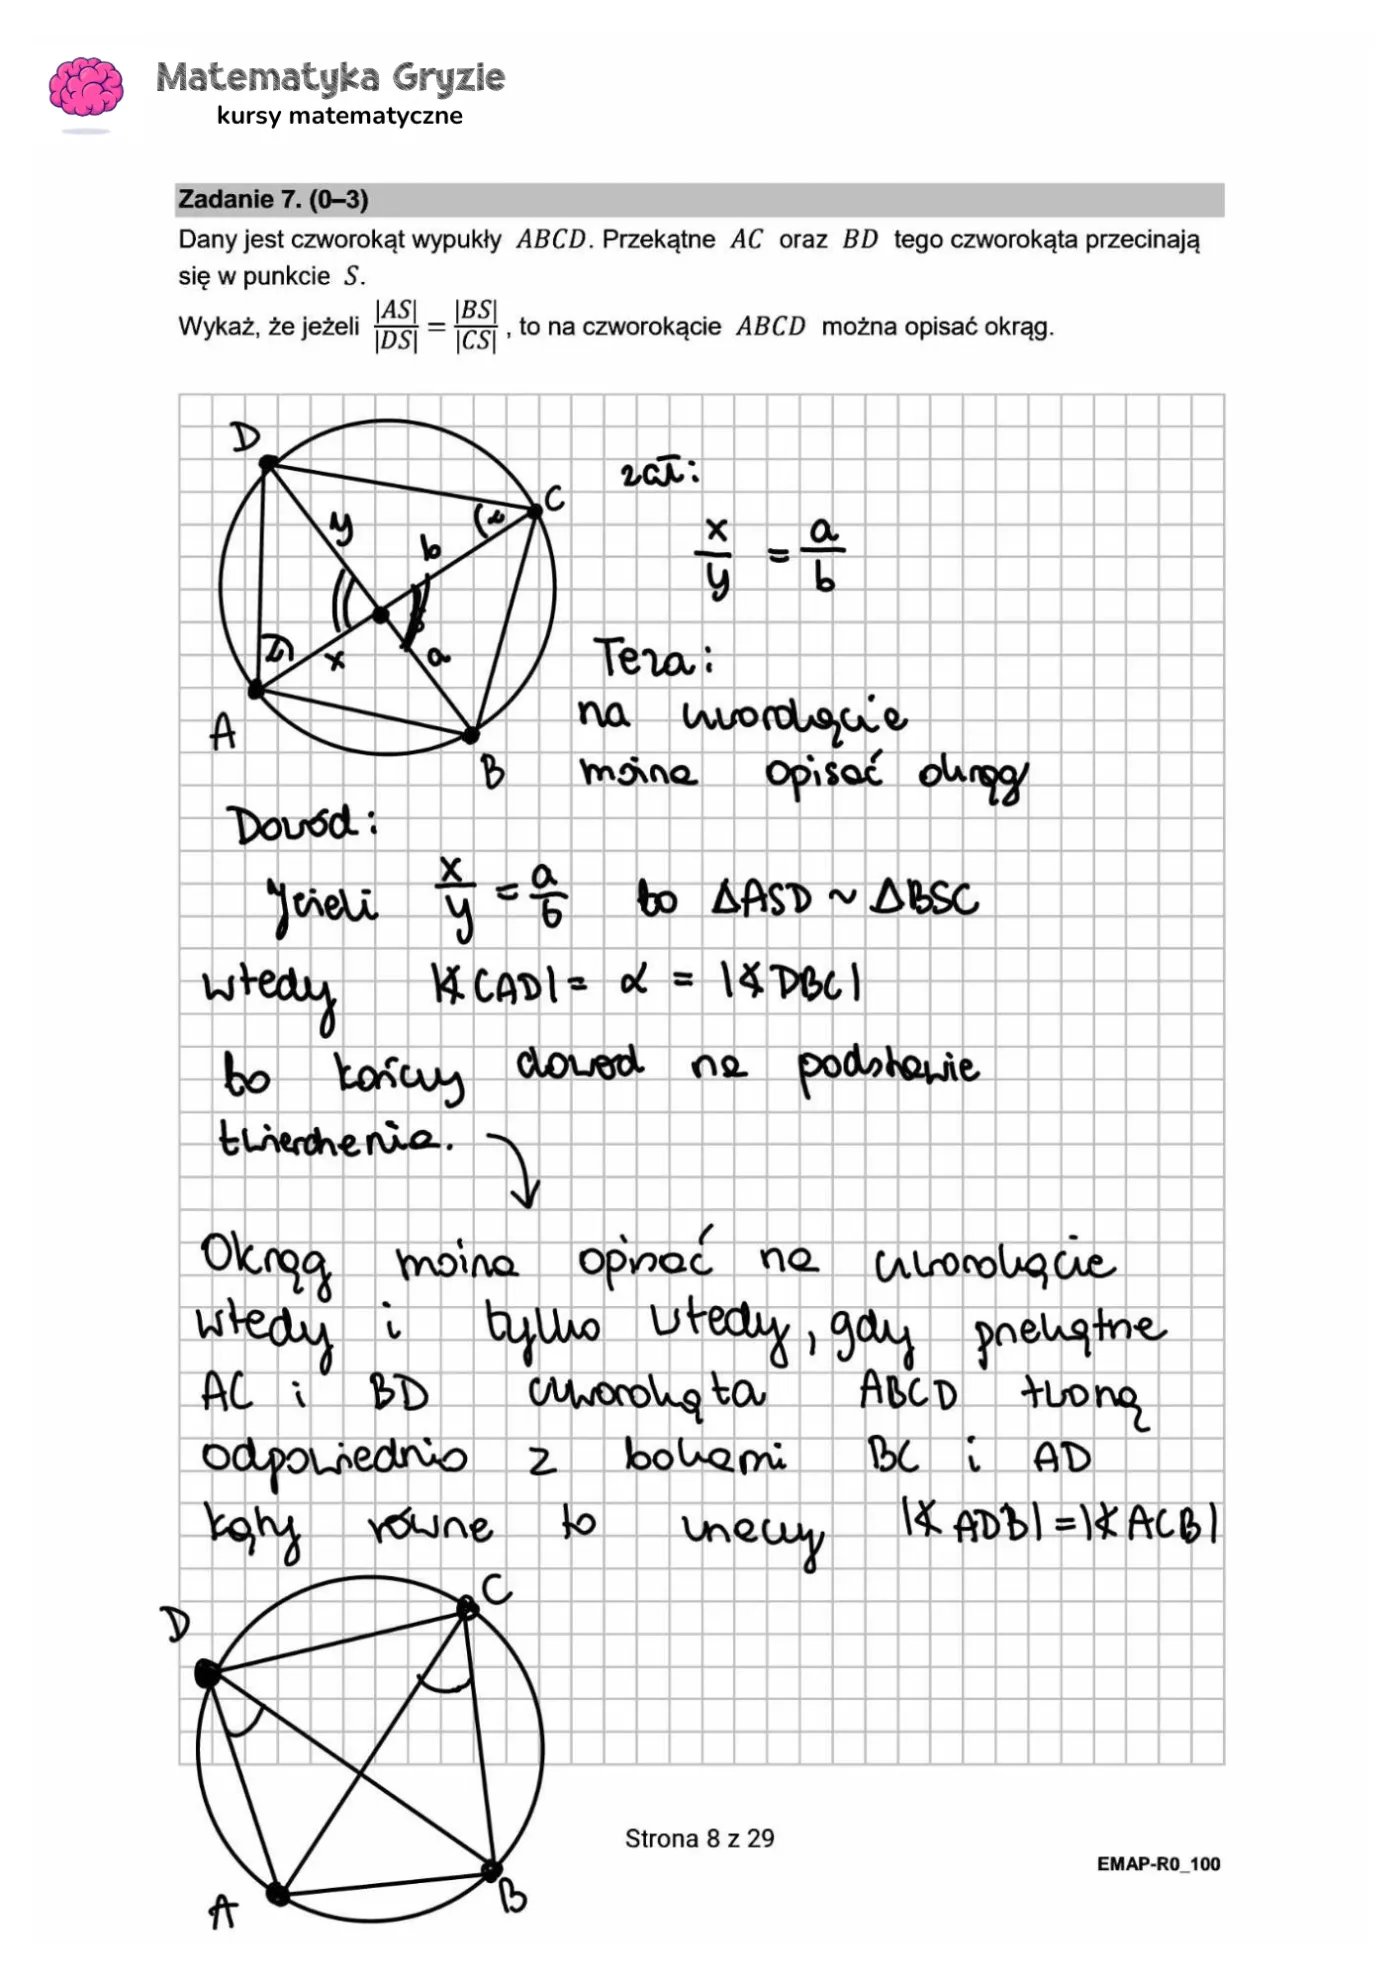 Matematyka Gryzie
kursy matematyczne
Zadanie 7. (0–3)
Dany jest czworokąt wypukły ABCD. Przekątne AC oraz BD tego czworokąta przecinają
się w punkcie S.
Wykaż, że jeżeli |AS|/|DS| = |BS|/|CS| , to na czworokącie ABCD można opisać okrąg.
D
C
y
b
α
x
a
A
B
zał:
x/y = a/b
Teza:
na czworokącie
można opisać okrąg
Dowód:
Jeżeli x/y = a/b to ΔASD ~ ΔBSC
wtedy |∢CAD| = α = |∢DBC|
to kończy dowód na podstawie
twierdzenia.
Okrąg można opisać na czworokącie
wtedy i tylko wtedy, gdy przekątne
AC i BD czworokąta ABCD tworzą
odpowiednio z bokami BC i AD
kąty równe to znaczy |∢ADB| = |∢ACB|
D
C
A
B
Strona 8 z 29
EMAP-R0_100